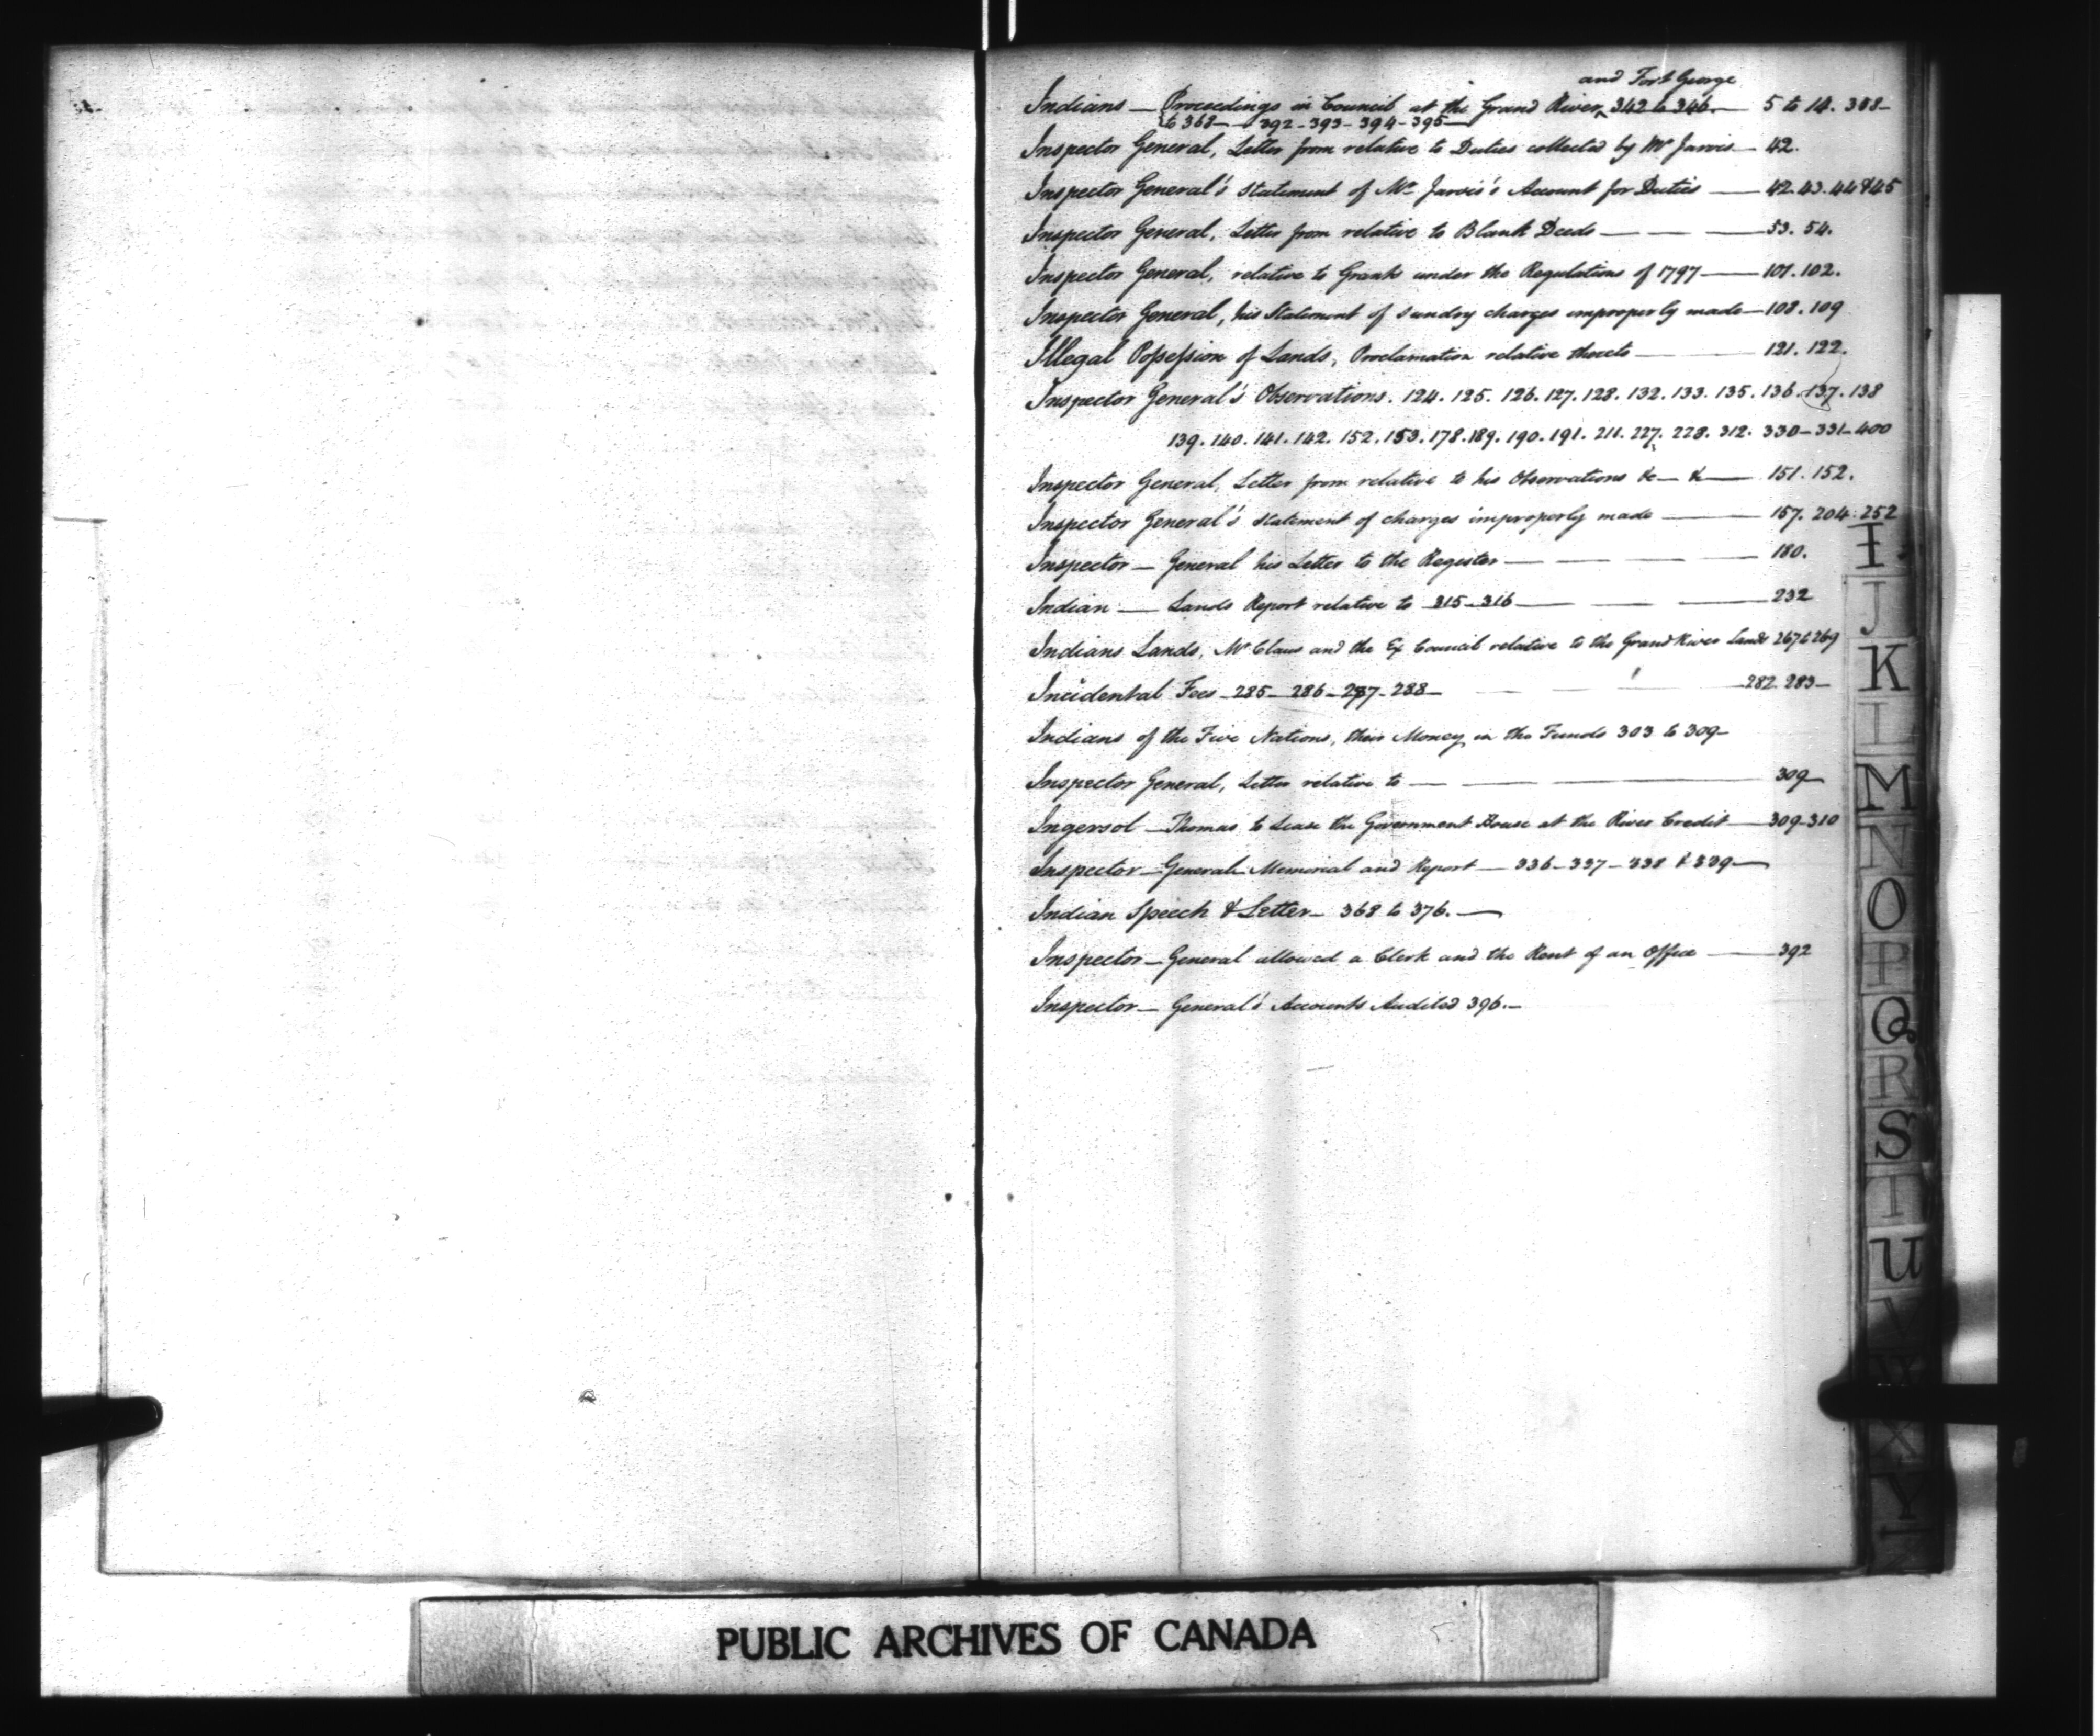 and Fort George
Indians — Proceedings in Council at the Grand River, 342 to 346. — 5 to 14. 358–
to 368 — 392 – 393 – 394 – 395 —
Inspector General, Letter from relative to Duties collected by Mr Jarvis — 42.
Inspector General's Statement of Mr Jarvis's Account for Duties — 42. 43. 44 & 45
Inspector General, Letter from relative to Blank Deeds — — — 53. 54.
Inspector General, relative to Grants under the Regulations of 1797 — 101. 102.
Inspector General, his Statement of Sundry charges improperly made — 108. 109
Illegal Possession of Lands, Proclamation relative thereto — 121. 122.
Inspector General's Observations. 124. 125. 126. 127. 128. 132. 133. 135. 136. 137. 138
139. 140. 141. 142. 152. 153. 178. 189. 190. 191. 211. 227. 228. 312. 330 – 331 – 400
Inspector General, Letter from relative to his Observations &c — & — 151. 152.
Inspector General's Statement of charges improperly made — 157. 204. 252
Inspector — General his Letter to the Register — — — 180.
Indian — Lands Report relative to 315 – 316 — — — 232
Indians Lands, Mr Claus and the Ex Council relative to the Grand River Lands 267 to 269
Incidental Fees – 285 – 286 – 287 – 288 — — — 282 283 –
Indians of the Five Nations, their Money in the Funds 303 to 309 –
Inspector General, Letter relative to — — — 309 –
Ingersol — Thomas to Lease the Government House at the River Credit — 309 – 310
Inspector — General Memorial and Report — 336 – 337 – 338 & 339 —
Indian Speech & Letter — 368 to 376. —
Inspector — General allowed a Clerk and the Rent of an Office — 392
Inspector — General's Accounts Audited 396. —
I
J
K
L
M
N
O
P
Q
R
S
T
U
V
W
X
Y
PUBLIC ARCHIVES OF CANADA